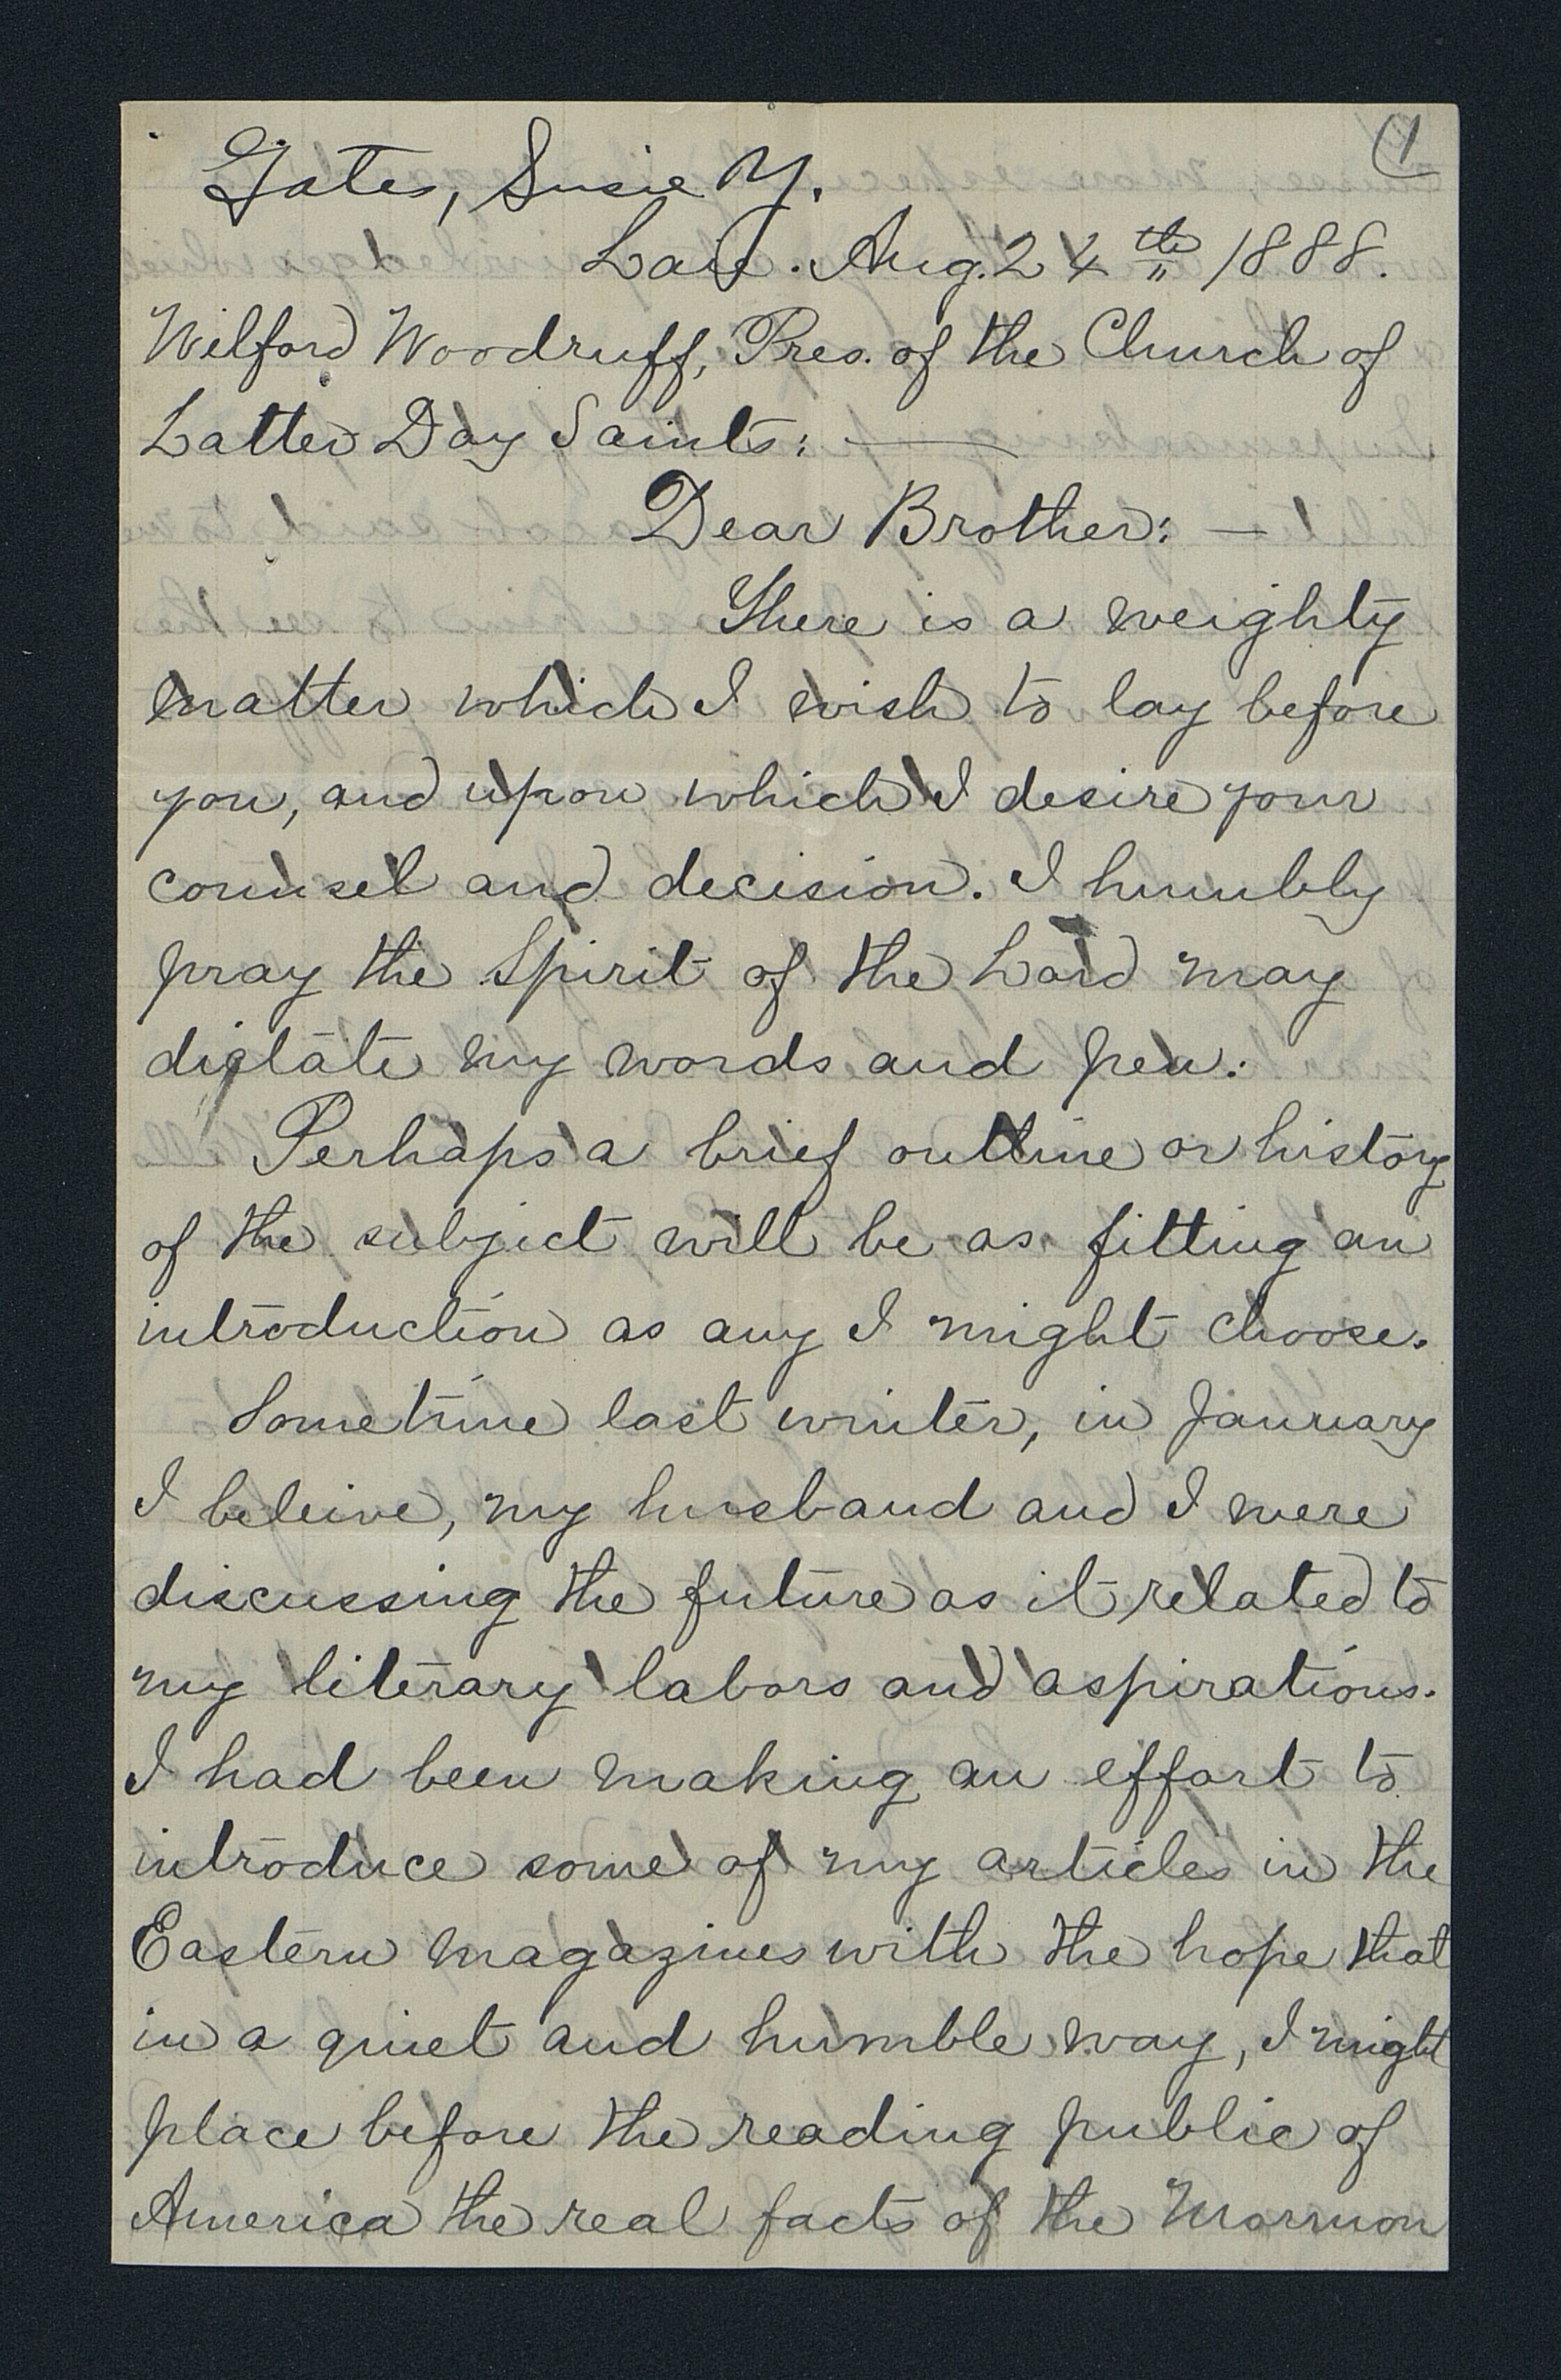 (1
Gates, Susie Y.
Laie. Aug. 24th 1888.
Wilford Woodruff, Pres. of the Church of
Latter Day Saints: —
Dear Brother: —
There is a weighty
matter which I wish to lay before
you, and upon which I desire your
counsel and decision. I humbly
pray the Spirit of the Lord may
dictate my words and pen.
Perhaps a brief outline or history
of the subject will be as fitting an
introduction as any I might choose.
Sometime last winter, in January
I beleive, my husband and I were
discussing the future as it related to
my literary labors and aspirations.
I had been making an effort to
introduce some of my articles in the
Eastern magazines with the hope that
in a quiet and humble way, I might
place before the reading public of
America the real facts of the Mormon